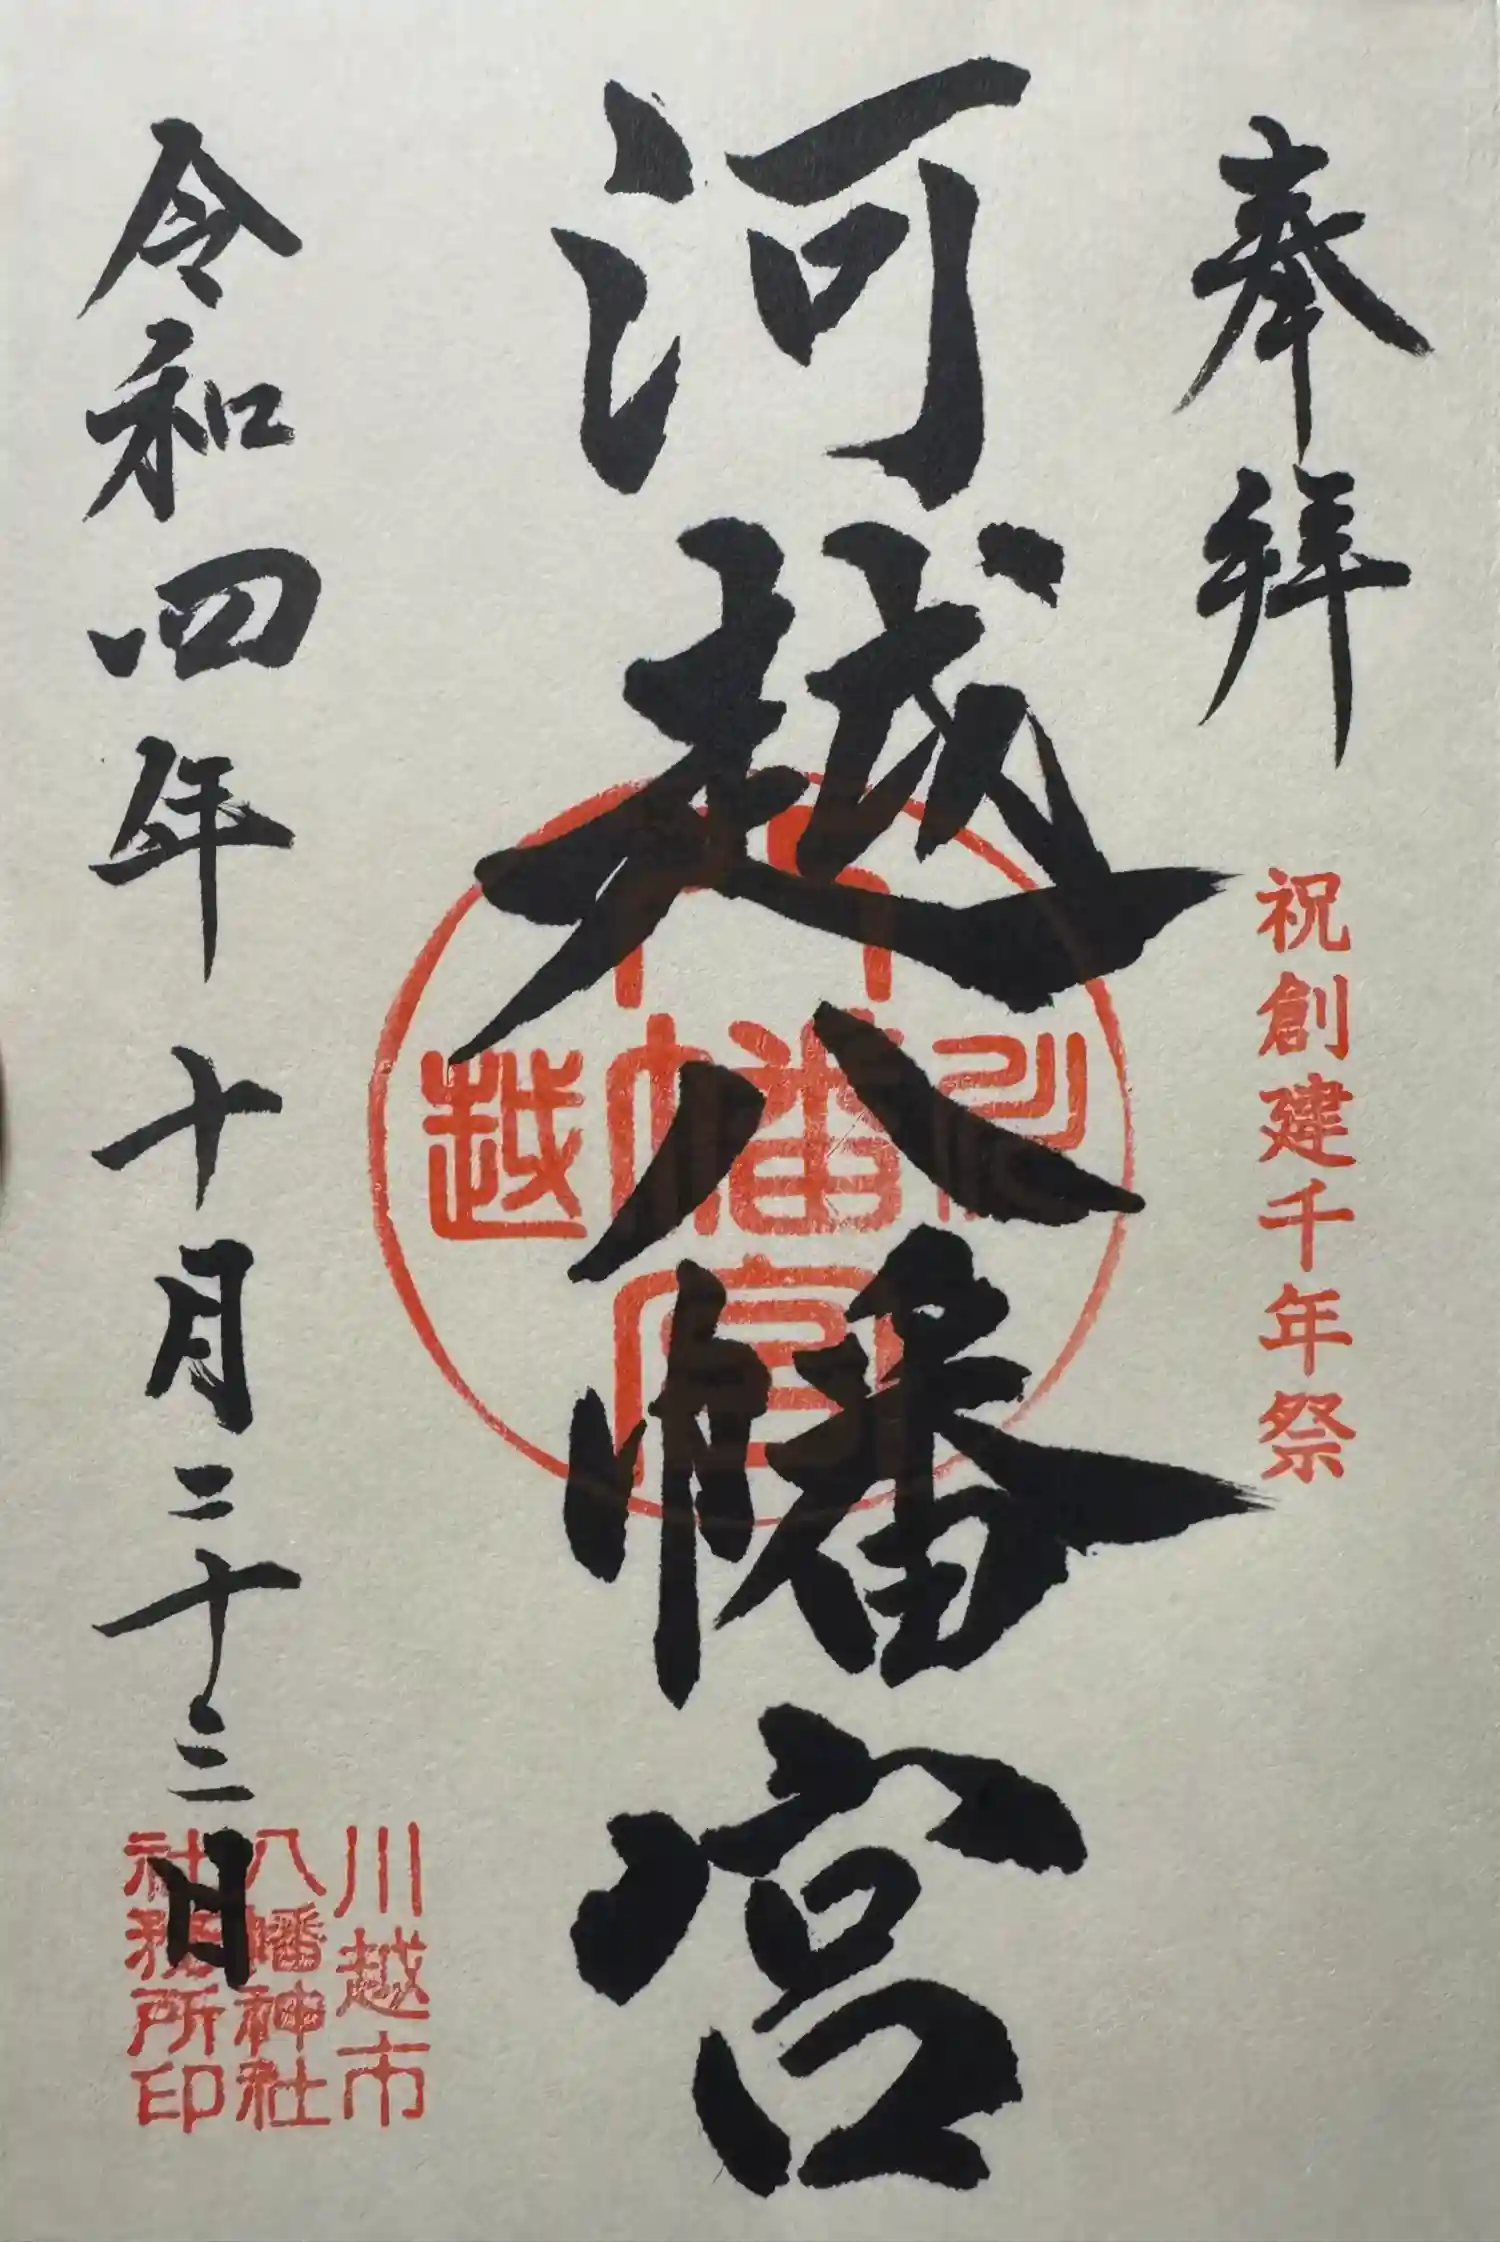 奉拜
祝創建千年祭
河越八幡宮
八幡宮
越
令和四年十月二十三日
川越市
八幡神社
社務所印